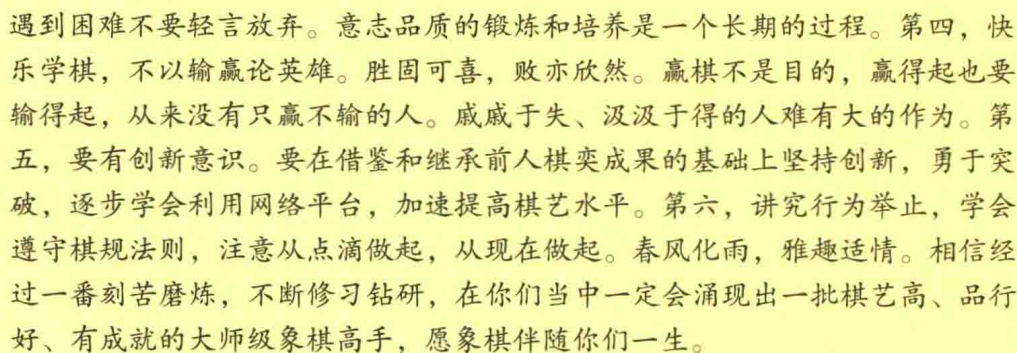 遇到困难不要轻言放弃。意志品质的锻炼和培养是一个长期的过程。第四，快
乐学棋，不以输赢论英雄。胜固可喜，败亦欣然。赢棋不是目的，赢得起也要
输得起，从来没有只赢不输的人。戚戚于失、汲汲于得的人难有大的作为。第
五，要有创新意识。要在借鉴和继承前人棋奕成果的基础上坚持创新，勇于突
破，逐步学会利用网络平台，加速提高棋艺水平。第六，讲究行为举止，学会
遵守棋规法则，注意从点滴做起，从现在做起。春风化雨，雅趣适情。相信经
过一番刻苦磨炼，不断修习钻研，在你们当中一定会涌现出一批棋艺高、品行
好、有成就的大师级象棋高手，愿象棋伴随你们一生。